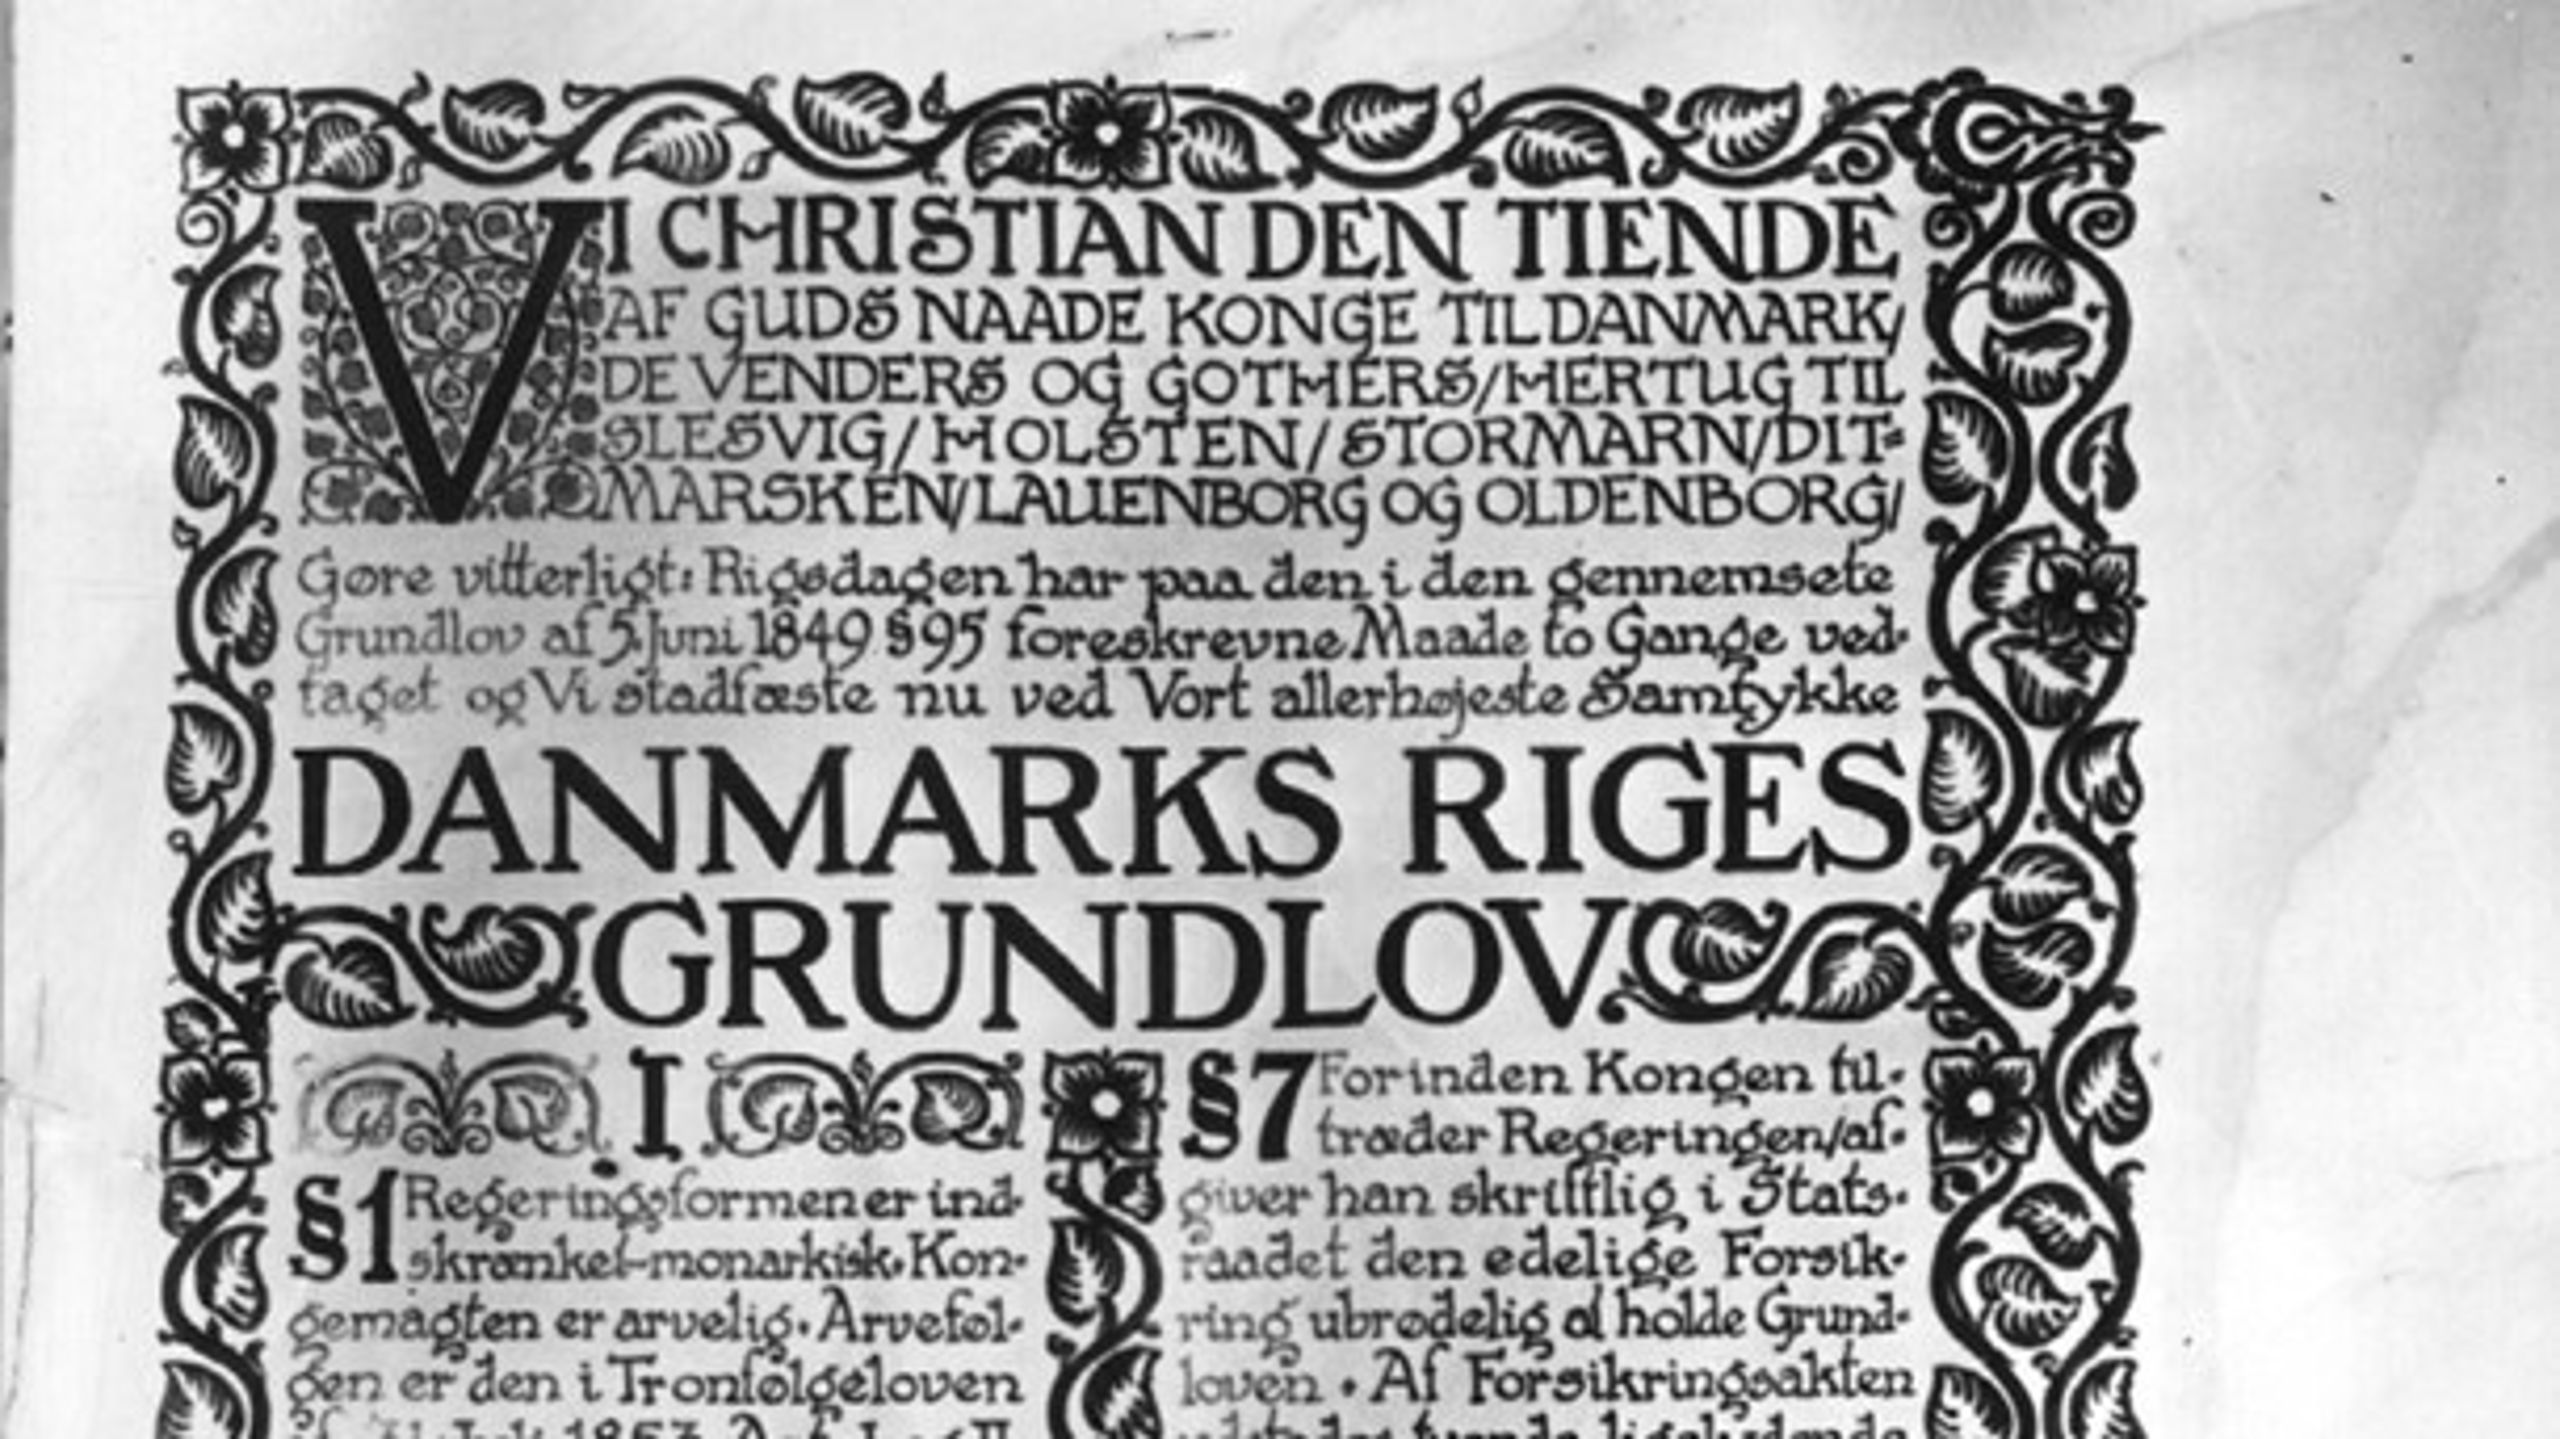 VI CHRISTIAN DEN TIENDE
AF GUDS NAADE KONGE TIL DANMARK/
DE VENDERS OG GOTHERS/HERTUG TIL
SLESVIG/HOLSTEN/STORMARN/DIT=
MARSKEN/LAUENBORG OG OLDENBORG/
Gøre vitterligt: Rigsdagen har paa den i den gennemsete
Grundlov af 5. Juni 1849 §95 foreskrevne Maade to Gange ved-
taget og Vi stadfæste nu ved Vort allerhøjeste Samtykke
DANMARKS RIGES
GRUNDLOV.
I
§1 Regeringsformen er ind-
skrænket-monarkisk. Kon-
gemagten er arvelig. Arveføl-
gen er den i Tronfølgeloven
af 31. Juli 1853
§7 Forinden Kongen til-
træder Regeringen/af-
giver han skriftlig i Stats-
raadet den edelige Forsik-
ring ubrødelig at holde Grund-
loven. Af Forsikringsakten
udstedes tvende ligelydende